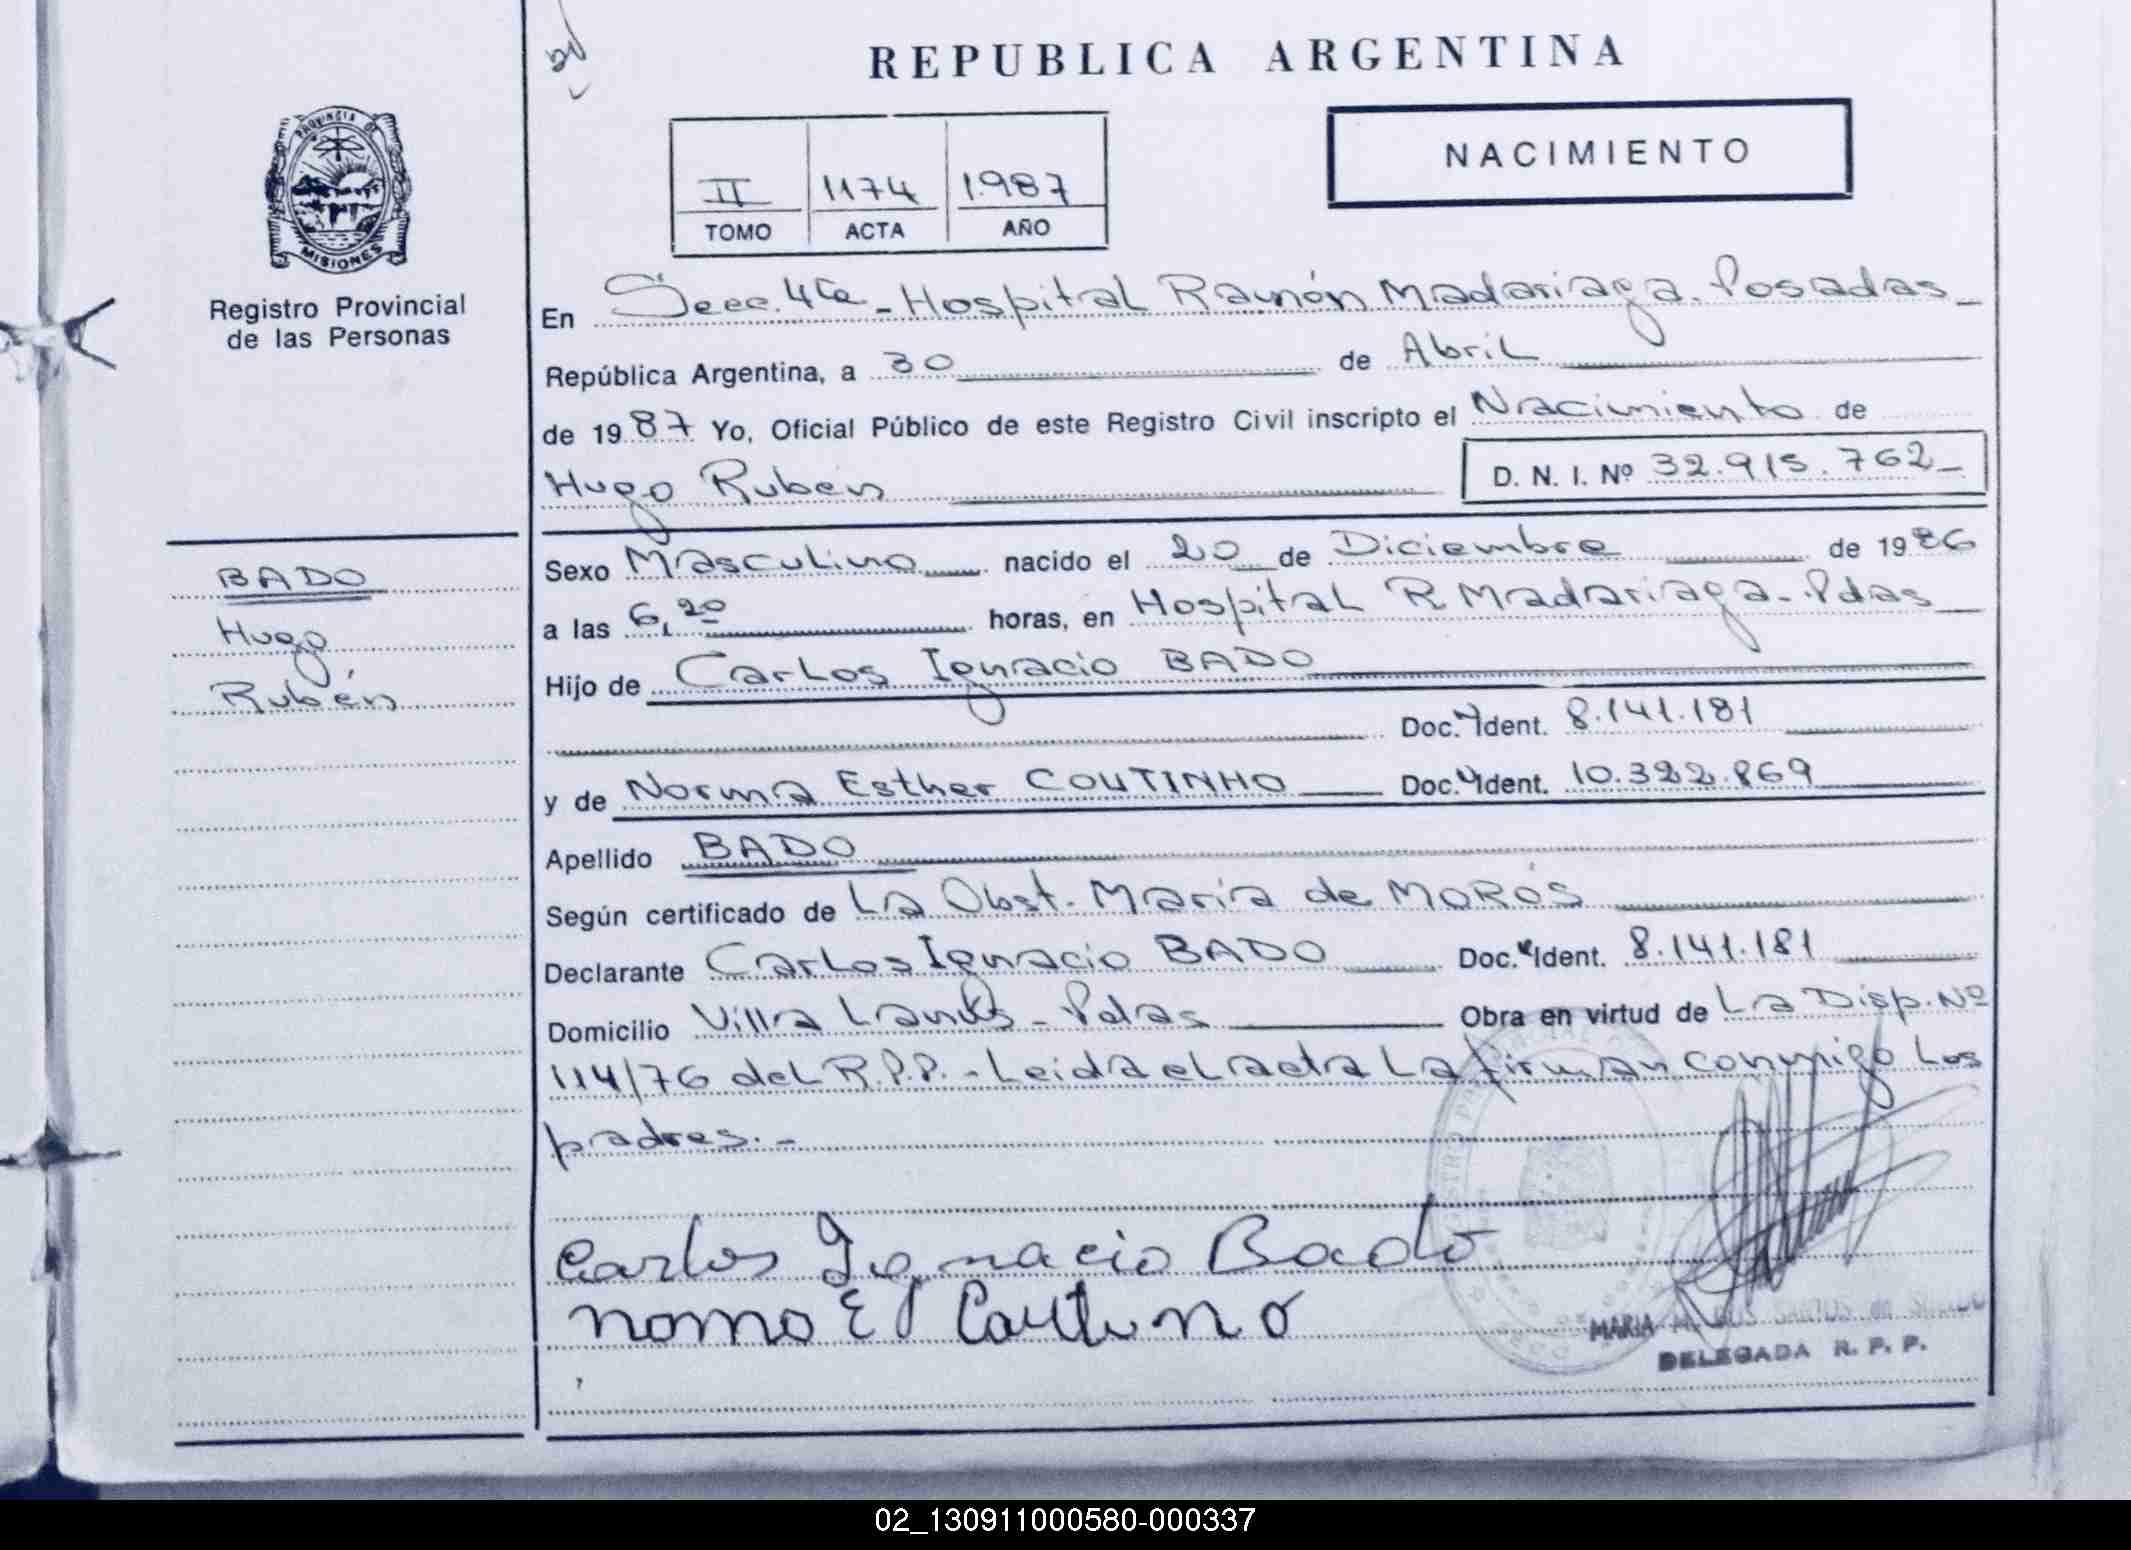 REPUBLICA ARGENTINA
PROVINCIA DE
MISIONES
Registro Provincial
de las Personas
II 1174 1.987
TOMO ACTA AÑO
NACIMIENTO
En Secc. 4ta - Hospital Ramón Madariaga. Posadas -
República Argentina, a 30 de Abril
de 1987 Yo, Oficial Público de este Registro Civil inscripto el Nacimiento de
Hugo Ruben D. N. I. Nº 32.915.762-
BADO
Hugo
Rubén
Sexo Masculino nacido el 20 de Diciembre de 1986
a las 6,20 horas, en Hospital R. Madariaga - Pdas
Hijo de Carlos Ignacio BADO
Doc. Ident. 8.141.181
y de Norma Esther COUTINHO Doc. Ident. 10.322.869
Apellido BADO
Según certificado de La Obst. María de MORÓS
Declarante Carlos Ignacio BADO Doc. Ident. 8.141.181
Domicilio Villa - Pdas Obra en virtud de La Disp. Nº
114/76 del R.P.P. - Leida el acta La firman conmigo Los
padres. -
Carlos Ignacio Bado
MARIA
DELEGADA R. P. P.
02_130911000580-000337